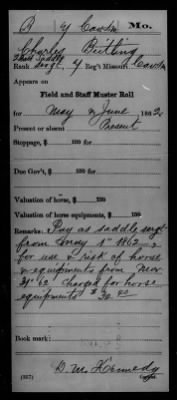 B | 4 Cav S M | Mo.
Charles Beitling
Rank Sergt, 4 Reg't Missouri Cav S M
Appears on
Field and Staff Muster Roll
for May & June, 1862
Present or absent Present
Stoppage, $ 100 for
Due Gov't, $ 100 for
Valuation of horse, $ 100
Valuation of horse equipments, $ 100
Remarks: Pay as saddle sergt
from May 1st 1862
for use & risk of horse
& equipments from
62 Charged for horse
equipments $
Book mark:
(857)